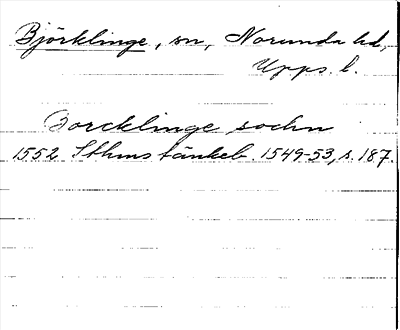 Björklinge, sn, Norunda hd,
Upps. l.
Borcklinge sochn
1552 Sthms tänkeb. 1549-53, s. 187.